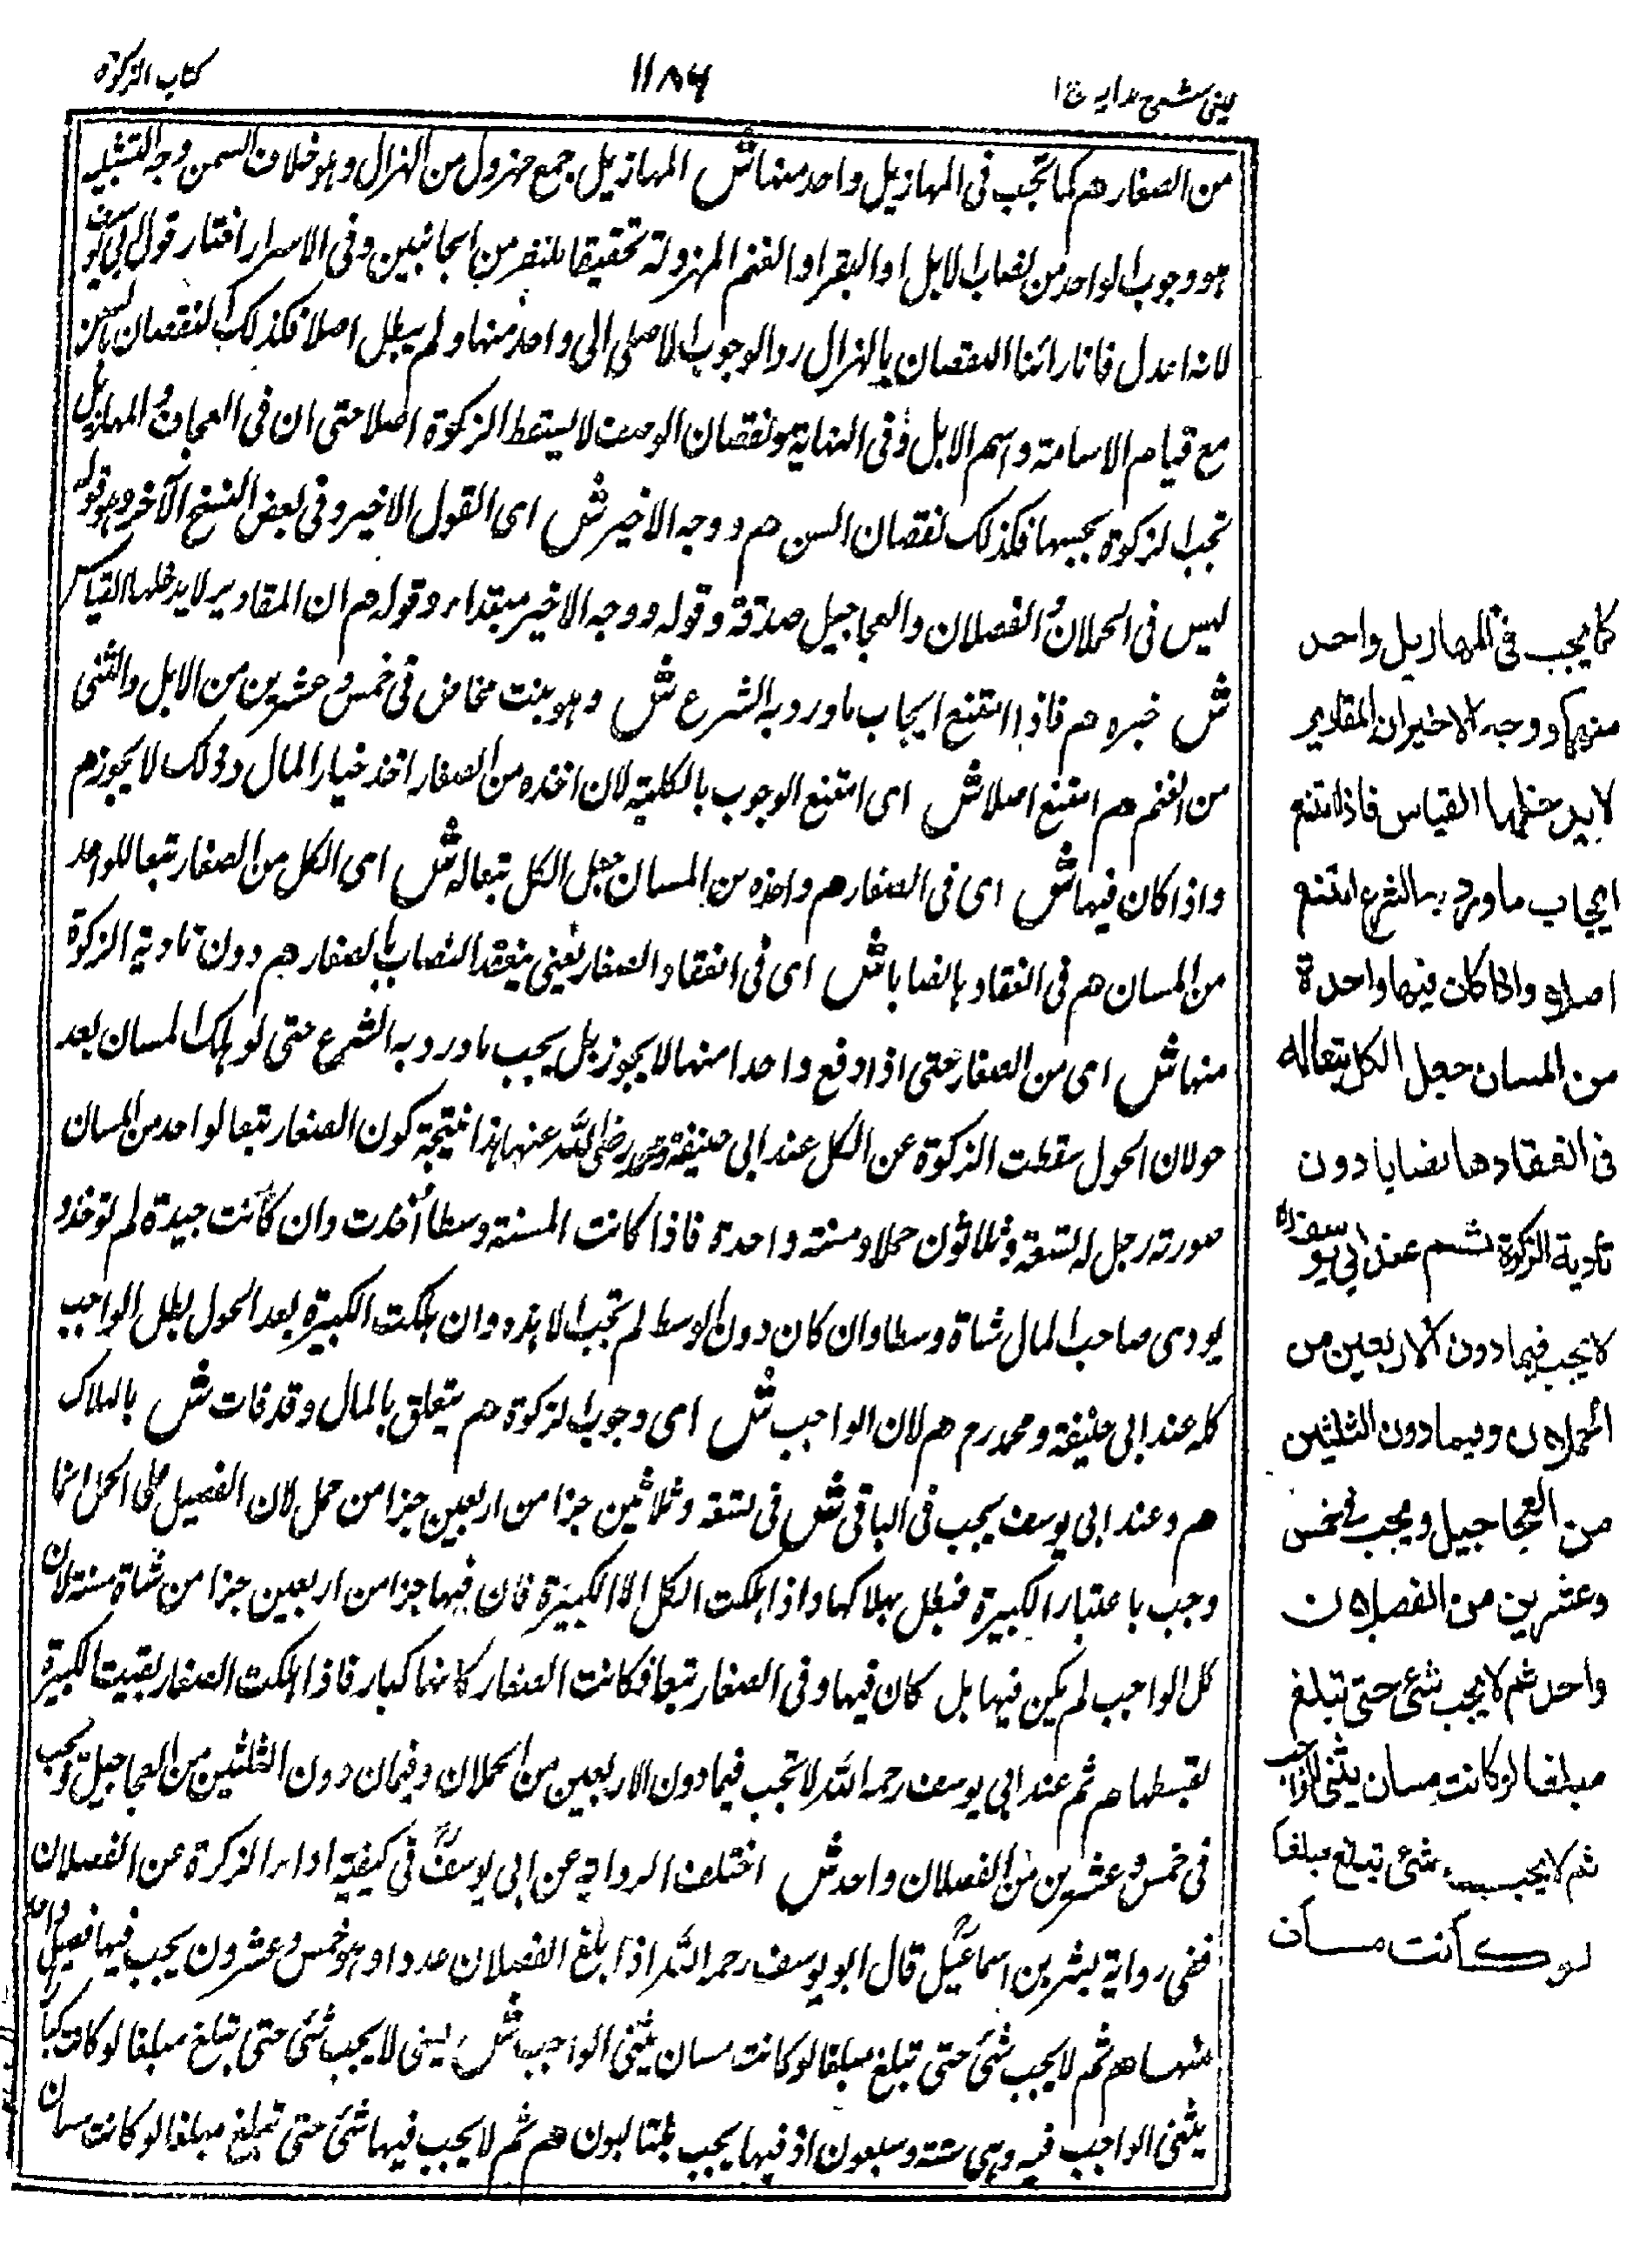 عینی شرح هدایه ج ۱
۱۱۸۶
کتاب الزکوة
من الصغار هم کما تجب فی المهازیل واحد منهاش المهازیل جمع مهزول من الهزال وهو خلاف السمن وجه التشبیه
هو وجوب الواحد من نصاب الابل او البقر او الغنم المهزولة تحقیقا للنظر من الجانبین وفی الاسرار اختار قول ابی یوسف
لانه اعدل فانا رائنا النقصان بالهزال رد الوجوب الاصلی الی واحد منها ولم یبطل اصلا فکذلک النقصان بالسن
مع قیام الاسامة واسم الابل وفی النهایة هو نقصان الوصف لا یسقط الزکوة اصلا حتی ان فی العجاف المهازیل
تجب الزکوة بحسبها فکذلک نقصان السن هم ووجه الاخیر ش ای القول الاخیر وفی بعض النسخ الآخر وهو قوله
لیس فی الحملان والفصلان والعجاجیل صدقة وقوله ووجه الاخیر مبتداء وقوله هم ان المقادیر لا یدخلها القیاس
ش خبره هم فاذا امتنع ایجاب ما ورد به الشرع ش وهو بنت مخاض فی خمس وعشرین من الابل والثنی
من الغنم هم امتنع اصلا ش ای امتنع الوجوب بالکلیة لان اخذه من الصغار اخذ خیار المال وذلک لا یجوز هم
واذا کان فیها ش ای فی الصغار هم واحدة من المسان جعل الکل تبعا له ش ای الکل من الصغار تبعا للواحد
من المسان هم فی انعقادها نصابا ش ای فی انعقاد الصغار یعنی ینعقد النصاب بالصغار هم دون تادیة الزکوة
منها ش ای من الصغار حتی اذا دفع واحدا منها لا یجوز بل یجب ما ورد به الشرع حتی لو هلک المسان بعد
حولان الحول سقطت الزکوة عن الکل عند ابی حنیفة ومحمد رضی الله عنهما هذا نتیجة کون الصغار تبعا لواحد من المسان
صورته رجل له تسعة وثلاثون حملا ومسنة واحدة فاذا کانت المسنة وسطا اخذت وان کانت جیدة لم توخذ و
یودی صاحب المال شاة وسطا وان کان دون الوسط لم تجب الا هذه وان هلکت الکبیرة بعد الحول بطل الواجب
کله عند ابی حنیفة ومحمد رح هم لان الواجب ش ای وجوب الزکوة هم یتعلق بالمال وقد فات ش بالهلاک
هم وعند ابی یوسف یجب فی الباقی ش فی تسعة وثلاثین جزا من اربعین جزا من حمل لان الفصیل علی الحمل انما
وجب باعتبار الکبیرة فبطل بهلاکها واذا هلکت الکل الا الکبیرة فان فیها جزا من اربعین جزا من شاة مسنة لان
کل الواجب لم یکن فیها بل کان فیها وفی الصغار تبعا فکانت الصغار کانها کبار فاذا هلکت الصغار بقیت الکبیرة
بقسطها هم ثم عند ابی یوسف رحمه الله لا تجب فیما دون الاربعین من الحملان وفیما دون الثلثین من العجاجیل ویجب
فی خمس وعشرین من الفصلان واحد ش اختلف الروایة عن ابی یوسف فی کیفیة اداء الزکوة عن الفصلان
ففی روایة بشر بن اسماعیل قال ابو یوسف رحمه الله اذا بلغ الفصلان عددا وهو خمس وعشرون یجب فیها فصیل واحد
منها هم ثم لا یجب شئ حتی تبلغ مبلغا لو کانت مسان یثنی الواجب ش یعنی لا یجب شئ حتی تبلغ مبلغا لو کانت کبارا
یثنی الواجب فیه وهی ستة وسبعون اذ فیها یجب بنتا لبون هم ثم لا یجب فیها شئ حتی تبلغ مبلغا لو کانت مسان
کما یجب فی المهازیل واحد
منها ووجه الاخیر ان المقادیر
لا یدخلها القیاس فاذا امتنع
ایجاب ما ورد به الشرع امتنع
اصلا واذا کان فیها واحدة
من المسان جعل الکل تبعا له
فی انعقادها نصابا دون
تادیة الزکوة ثم عند ابی یوسف رح
لا یجب فیما دون الاربعین من
الحملان وفیما دون الثلثین
من العجاجیل ویجب فی خمس
وعشرین من الفصلان
واحد ثم لا یجب شئ حتی تبلغ
مبلغا لو کانت مسان یثنی الواجب
ثم لا یجب شئ تبلغ مبلغا
لو کانت مسان